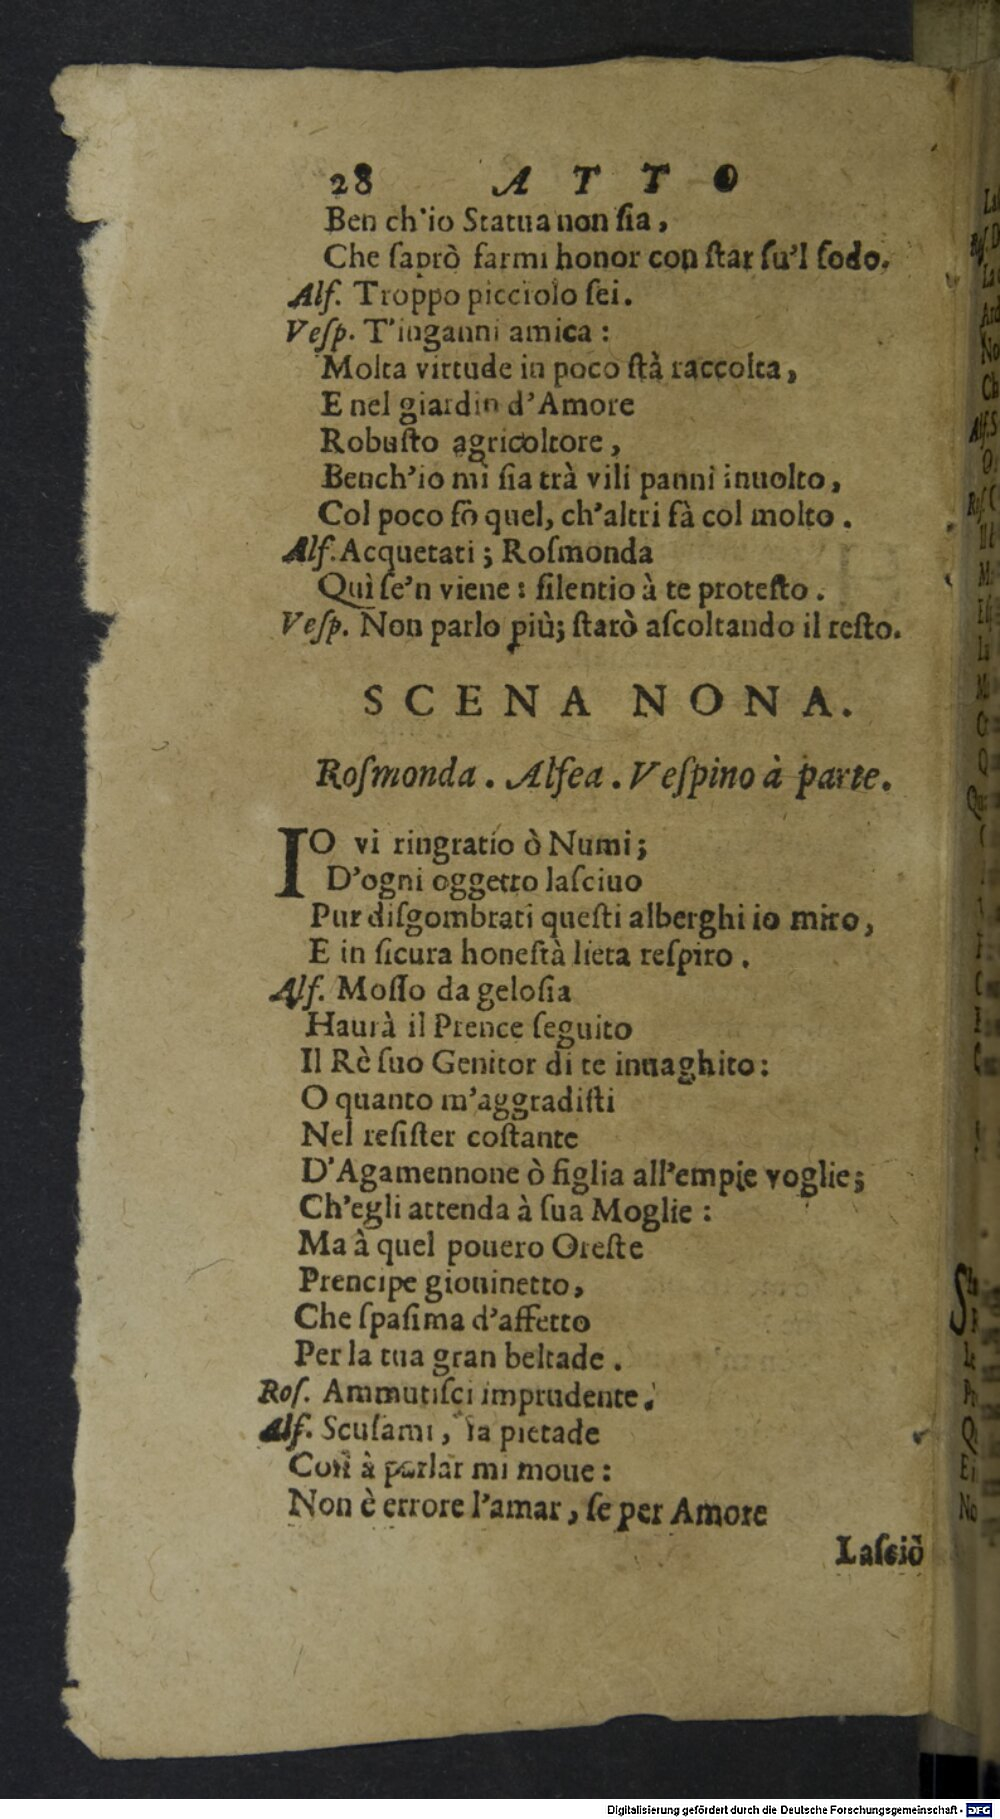 28 ATTO
Ben ch'io Statua non ſia,
Che ſaprò farmi honor con ſtar ſu'l ſodo.
Alf. Troppo picciolo ſei.
Veſp. T'inganni amica:
Molta virtude in poco ſtà raccolta,
E nel giardin d'Amore
Robuſto agricoltore,
Bench'io mi ſia trà vili panni inuolto,
Col poco fò quel, ch'altri fà col molto.
Alf. Acquetati; Roſmonda
Quì ſe'n viene: ſilentio à te proteſto.
Veſp. Non parlo più; ſtarò aſcoltando il reſto.
SCENA NONA.
Roſmonda. Alfea. Veſpino à parte.
IO vi ringratio ò Numi;
D'ogni oggetto laſciuo
Pur diſgombrati queſti alberghi io miro,
E in ſicura honeſtà lieta reſpiro.
Alf. Moſſo da geloſia
Haurà il Prence ſeguito
Il Rè ſuo Genitor di te inuaghito:
O quanto m'aggradiſti
Nel reſiſter coſtante
D'Agamennone ò figlia all'empie voglie;
Ch'egli attenda à ſua Moglie:
Ma à quel pouero Oreſte
Prencipe giouinetto,
Che ſpaſima d'affetto
Per la tua gran beltade.
Roſ. Ammutiſci imprudente.
Alf. Scuſami, la pietade
Così à parlar mi moue:
Non è errore l'amar, ſe per Amore
Laſciò
Digitalisierung gefördert durch die Deutsche Forschungsgemeinschaft - DFG